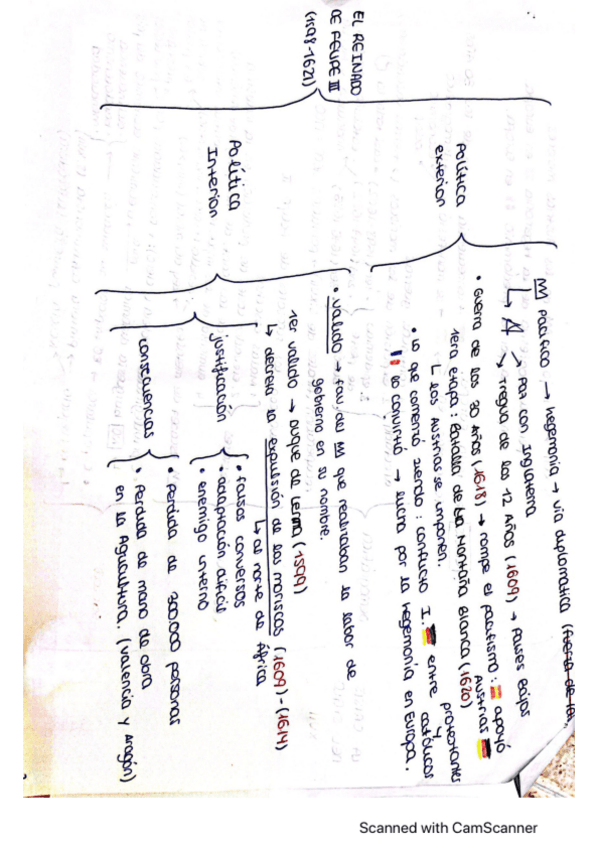 EL REINADO
DE FELIPE III
(1598-1621)
Política
exterior
M Pacífico → hegemonía → vía diplomática (fuerza de
Paz con Inglaterra
Tregua de los 12 Años (1609) → Países Bajos
• Guerra de los 30 Años (1618) → rompe el pacifismo: apoyó
Austrias
1era etapa: Batalla de La Montaña Blanca (1620)
los Austrias se imponen.
• Lo que comenzó siendo: conflicto I. entre protestantes
y
católicos
lo convirtió → lucha por la hegemonía en Europa.
Política
Interior
• Valido → fav. del M que realizaban la labor de
gobierno en su nombre.
1er valido → Duque de Lerma (1599)
decreta la expulsión de los moriscos (1609)-(1614)
al norte de África
justificación
• falsos conversos
• adaptación difícil
• enemigo interno
consecuencias
• Perdida de 300.000 personas
• Perdida de mano de obra
en la Agricultura. (Valencia y Aragón)
Scanned with CamScanner